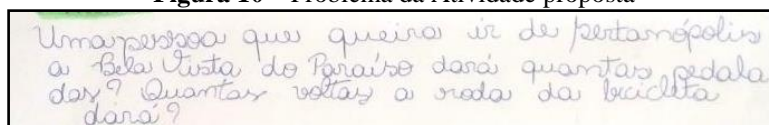 Figura 10 – Problema da Atividade proposta
Uma pessoa que queira ir de Sertanópolis
a Bela Vista do Paraíso dará quantas pedala
das? Quantas voltas a roda da bicicleta
dará?